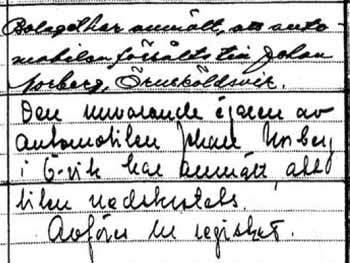 Bolaget har anmält, att auto-
mobilen försålts till Johan
Norberg, Örnsköldsvik.
Den nuvarande ägaren av
automobilen Johan Norberg
i Ö-vik har anmält, att
bilen nedskrotats.
Avföres ur registret.